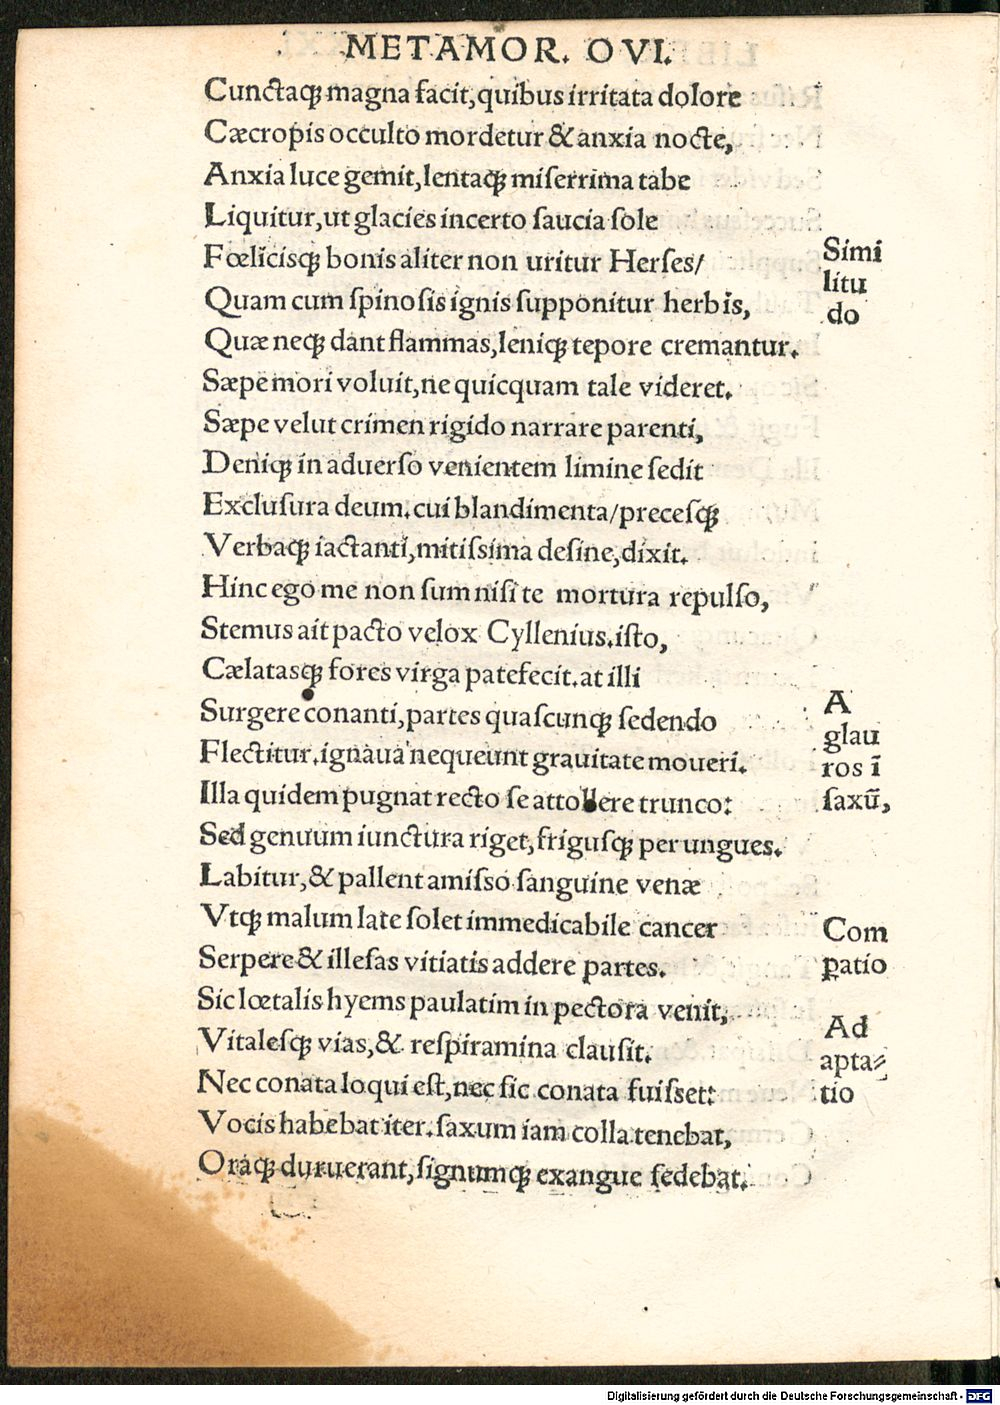 METAMOR. OVI.
Cunctaqꝫ magna facit, quibus irritata dolore
Cæcropis occulto mordetur & anxia nocte,
Anxia luce gemit, lentaqꝫ miſerrima tabe
Liquitur, ut glacies incerto ſaucia ſole
Fœlicisqꝫ bonis aliter non uritur Herſes/
Quam cum ſpinoſis ignis ſupponitur herbis,
Quæ neqꝫ dant flammas, leniqꝫ tepore cremantur.
Sæpe mori voluit, ne quicquam tale videret.
Sæpe velut crimen rigido narrare parenti,
Deniqꝫ in aduerſo venientem limine ſedit
Excluſura deum. cui blandimenta/preceſqꝫ
Verbaqꝫ iactanti, mitiſsima deſine, dixit.
Hinc ego me non ſum niſi te mortura repulſo,
Stemus ait pacto velox Cyllenius. iſto,
Cælatasqꝫ fores virga patefecit. at illi
Surgere conanti, partes quaſcunqꝫ ſedendo
Flectitur. ignaua nequeunt grauitate moueri.
Illa quidem pugnat recto ſe attollere trunco:
Sed genuum iunctura riget, friguſqꝫ per ungues.
Labitur, & pallent amiſſo ſanguine venæ
Vtqꝫ malum late ſolet immedicabile cancer
Serpere & illeſas vitiatis addere partes.
Sic lœtalis hyems paulatim in pectora venit,
Vitaleſqꝫ vias, & reſpiramina clauſit.
Nec conata loqui eſt, nec ſic conata fuiſſet:
Vocis habebat iter. ſaxum iam colla tenebat,
Oraqꝫ duruerant, ſignumqꝫ exangue ſedebat.
Simi
litu
do
A
glau
ros ī
ſaxū,
Com
ꝑatio
Ad
apta⸗
tio
Digitalisierung gefördert durch die Deutsche Forschungsgemeinschaft - DFG